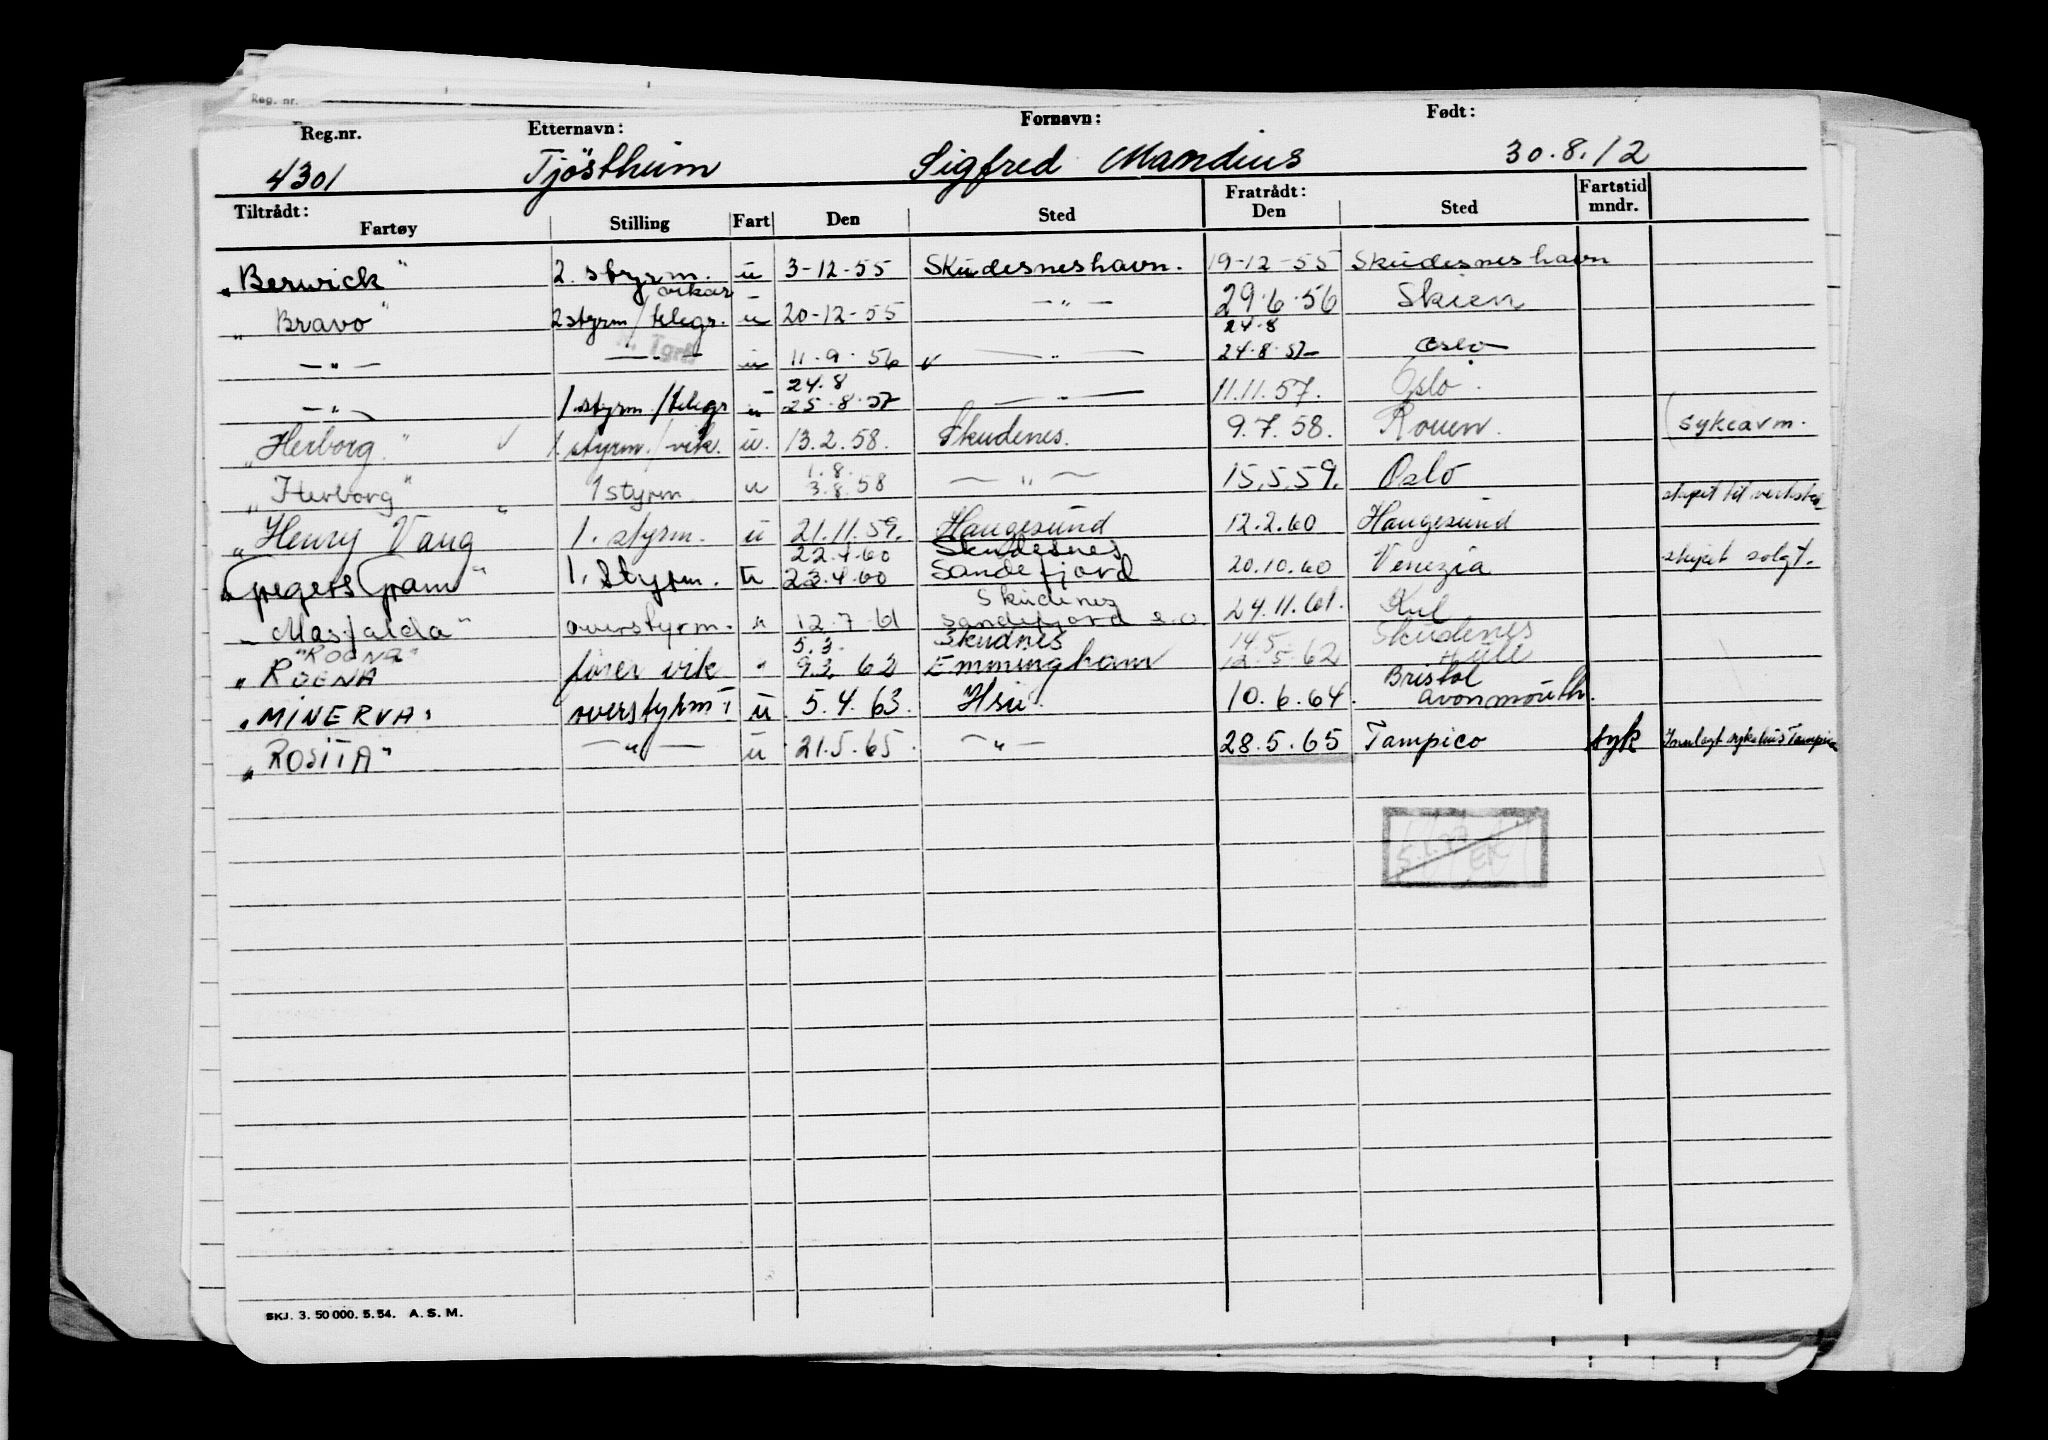 Reg. nr.
Reg.nr. Etternavn: Fornavn: Født:
4301 Tjøstheim Sigfred Mandius 30.8.12
Tiltrådt: Fratrådt: Fartstid
Fartøy Stilling Fart Den Sted Den Sted mndr.
"Berwick" 2. styrm. u 3-12-55 Skudesneshavn. 19-12-55 Skudesneshavn
vikar
"Bravo" 2 styrm/telegr. u 20-12-55 —"— 29.6.56 Skien
24.8
—"— —"— u 11.9.56 —"— 24.8.57 Oslo
24.8
—"— 1. styrm/telegr u 25.8.57 —"— 11.11.57. Oslo.
"Herborg" 1. styrm./vik. u. 13.2.58. Skudenes. 9.7.58. Rouen. sykeavm.
1.8.
"Herborg" 1 styrm. u 3.8.58 —"— 15.5.59. Oslo skipet til verksted
"Henry Vang" 1. styrm. u 21.11.59. Haugesund 12.2.60 Haugesund
22.4.60 Skudesnes
"Gregers Gram" 1. styrm. u 23.4.60 Sandefjord 20.10.60 Venezia skipet solgt.
Skudenes
"Masfalda" overstyrm. " 12.7.61 Sandefjord s.o. 24.11.61. Kiel
"ROENA" 5.3. Skudnes 14.5. Skudenes
"ROENA" fører vik " 9.3.62 Emmingham 12.5.62 Hull
Bristol
"MINERVA" overstyrm. u 5.4.63. Hsu. 10.6.64. avonmouth.
"ROSITA" —"— u 21.5.65. —"— 28.5.65 Tampico syk Innlagt sykehus Tampico
SKJ. 3. 50 000. 5. 54. A. S. M.